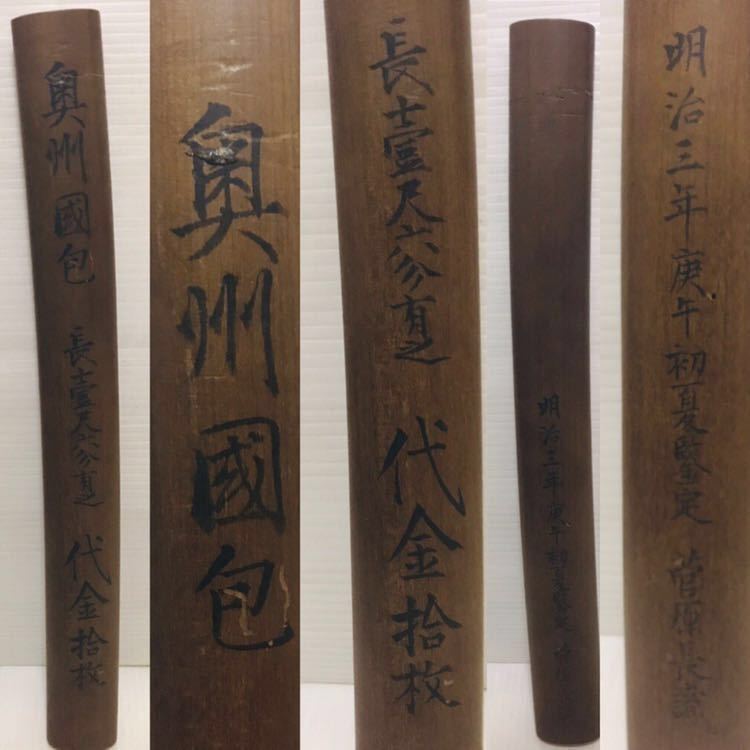 奥州國包 長壹尺六分有之 代金拾枚
奥州國包
長壹尺六分有之 代金拾枚
明治三年庚午初夏鑒定
明治三年庚午初夏鑒定 菅原長識